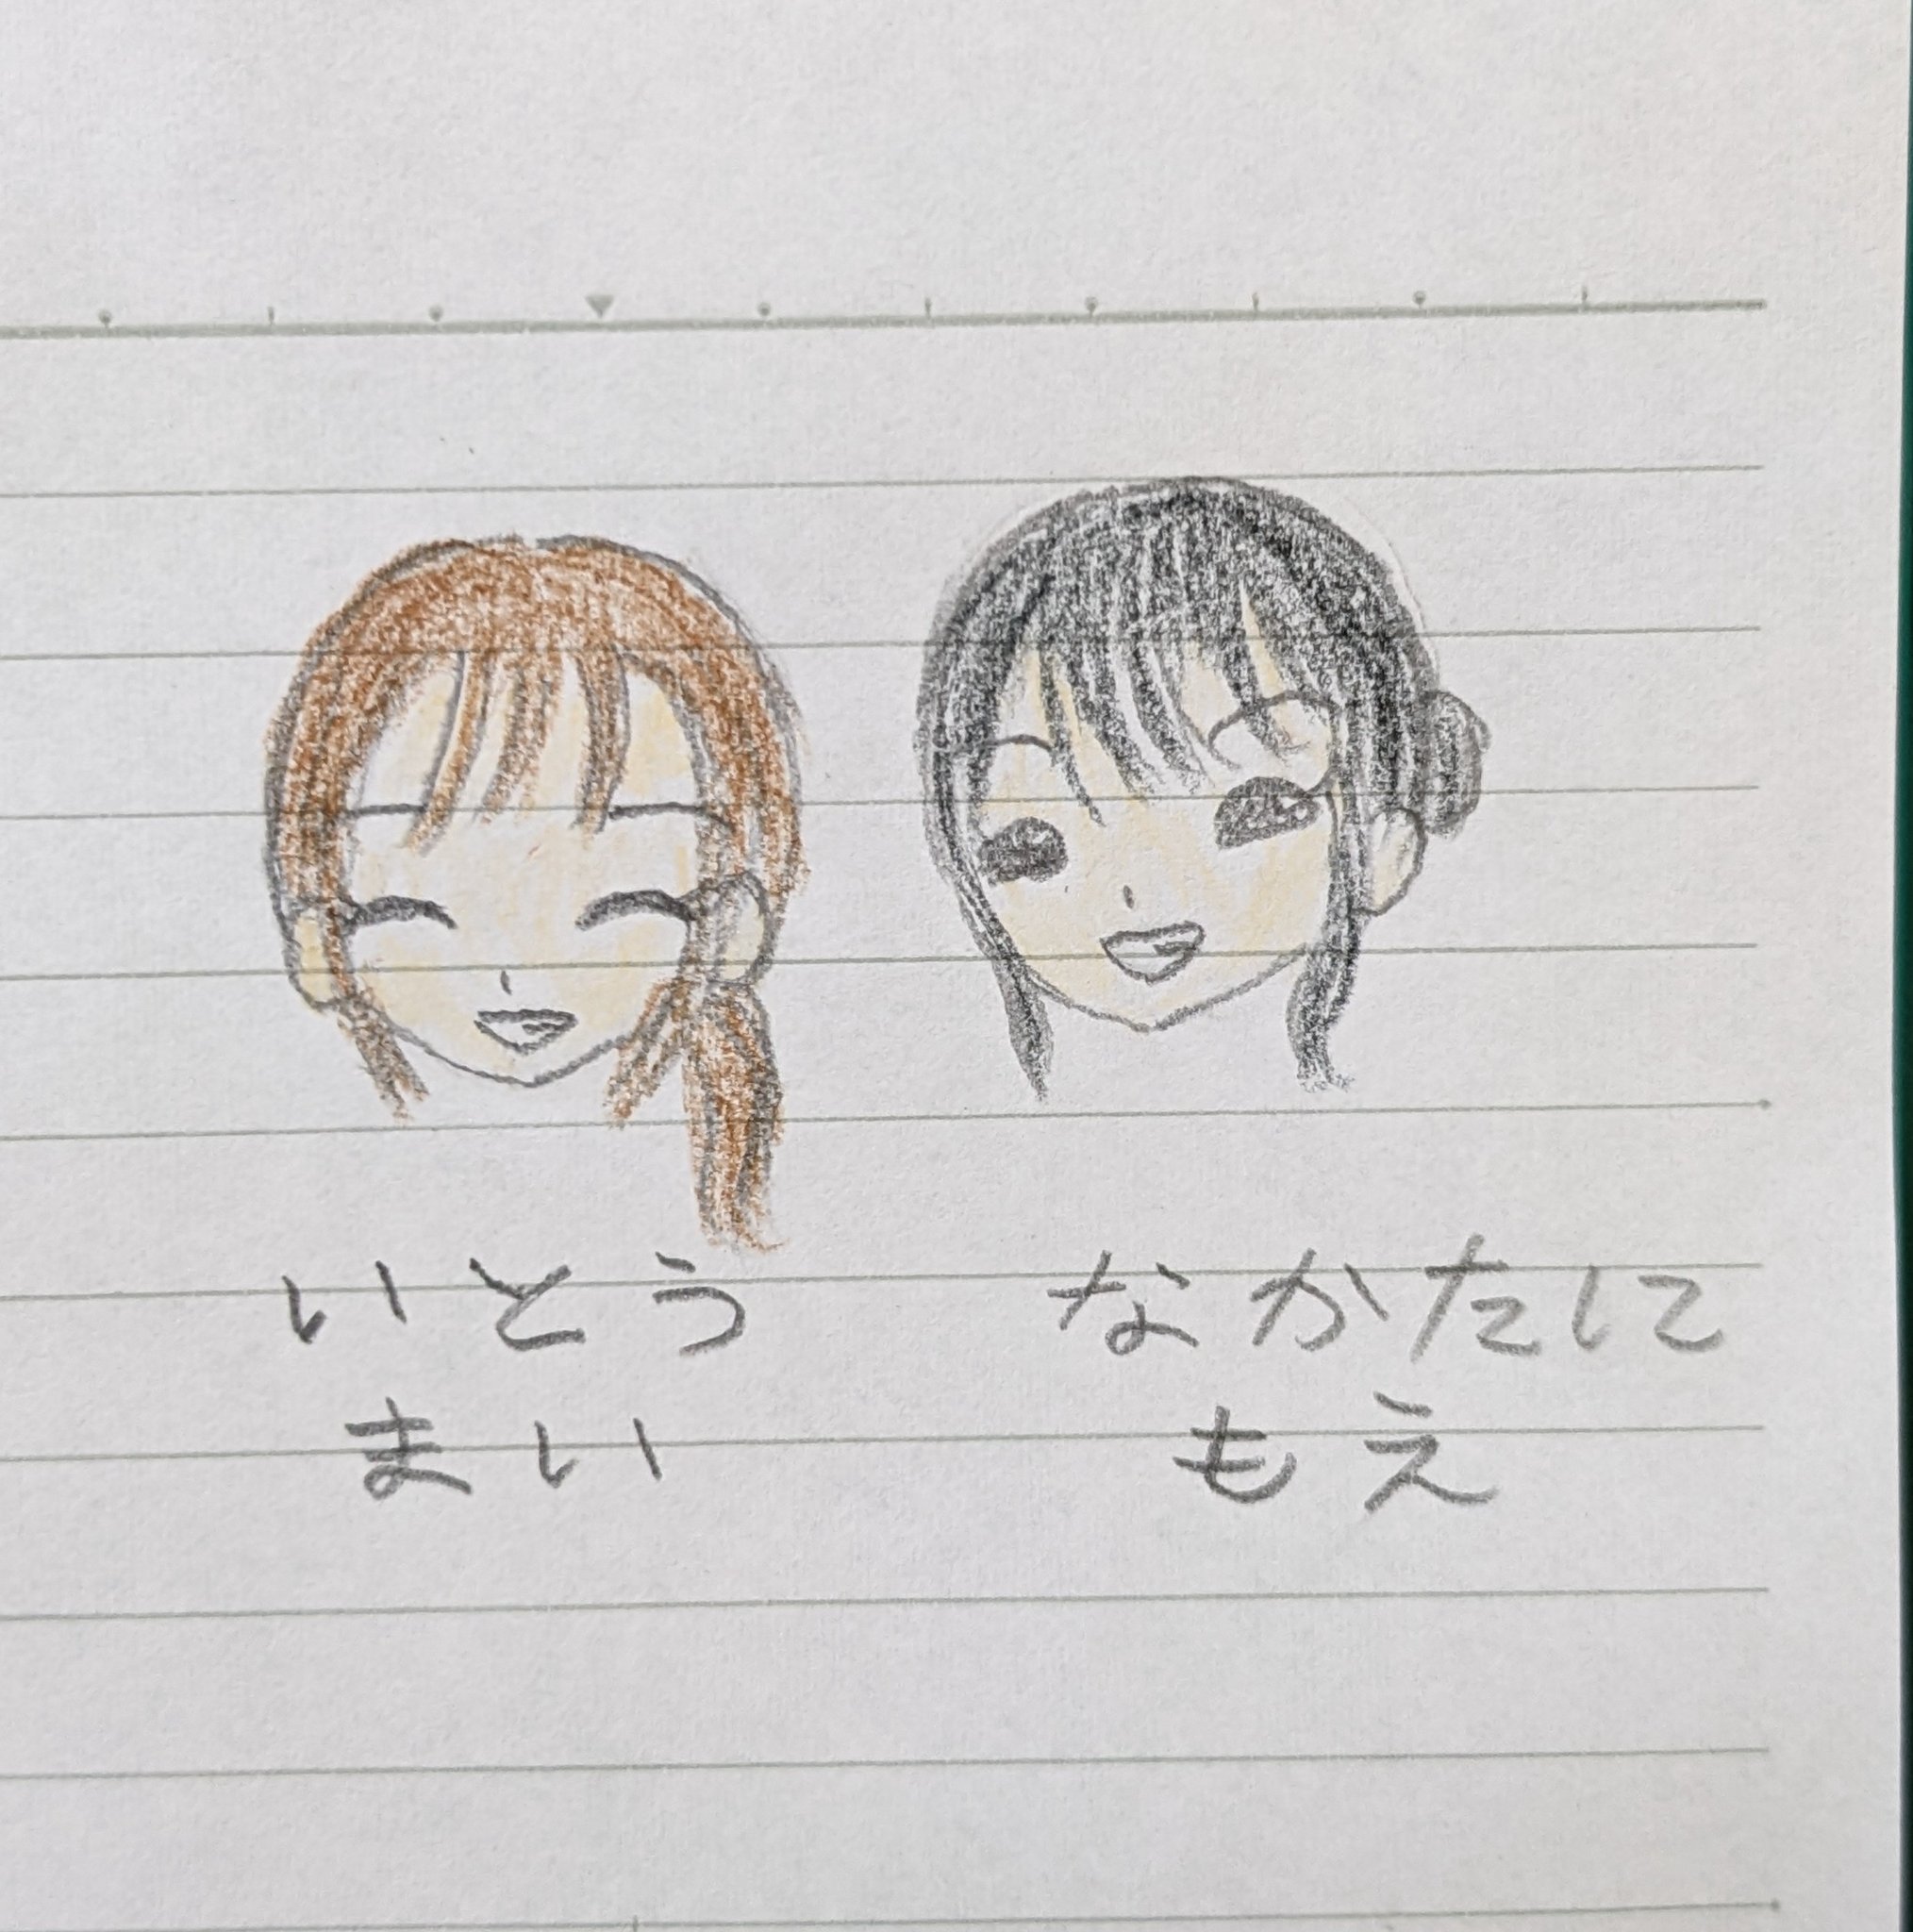 いとう
まい
なかたに
もえ